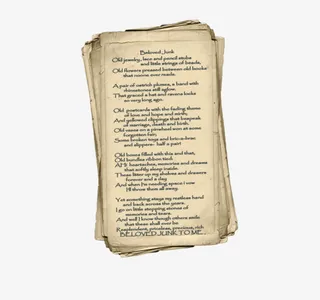 Beloved Junk
Old jewelry, lace and pencil stubs
and little strings of beads,
Old flowers pressed between old books
that noone ever reads.
A pair of ostrich plumes, a band with
rhinestones still aglow,
That graced a hat and raven locks
so very long ago.
Old postcards with the fading theme
of love and hope and mirth,
And yellowed clippings that bespeak
of marriage, death and birth,
Old vases on a pinwheel won at some
forgotten fair,
Some broken toys and bric-a-brac
and slippers- half a pair!
Old boxes filled with this and that,
Old bundles ribbon tied
AH! heartaches, memories and dreams
that softly sleep inside.
These litter up my shelves and drawers
forever and a day
And when I'm needing space I vow
I'll throw them all away.
Yet something stays my restless hand
and back across the years,
I go on little stepping stones of
memories and tears.
And well I know though others smile
that these shall ever be
Resplendent, priceless, precious, rich
BELOVED JUNK TO ME.